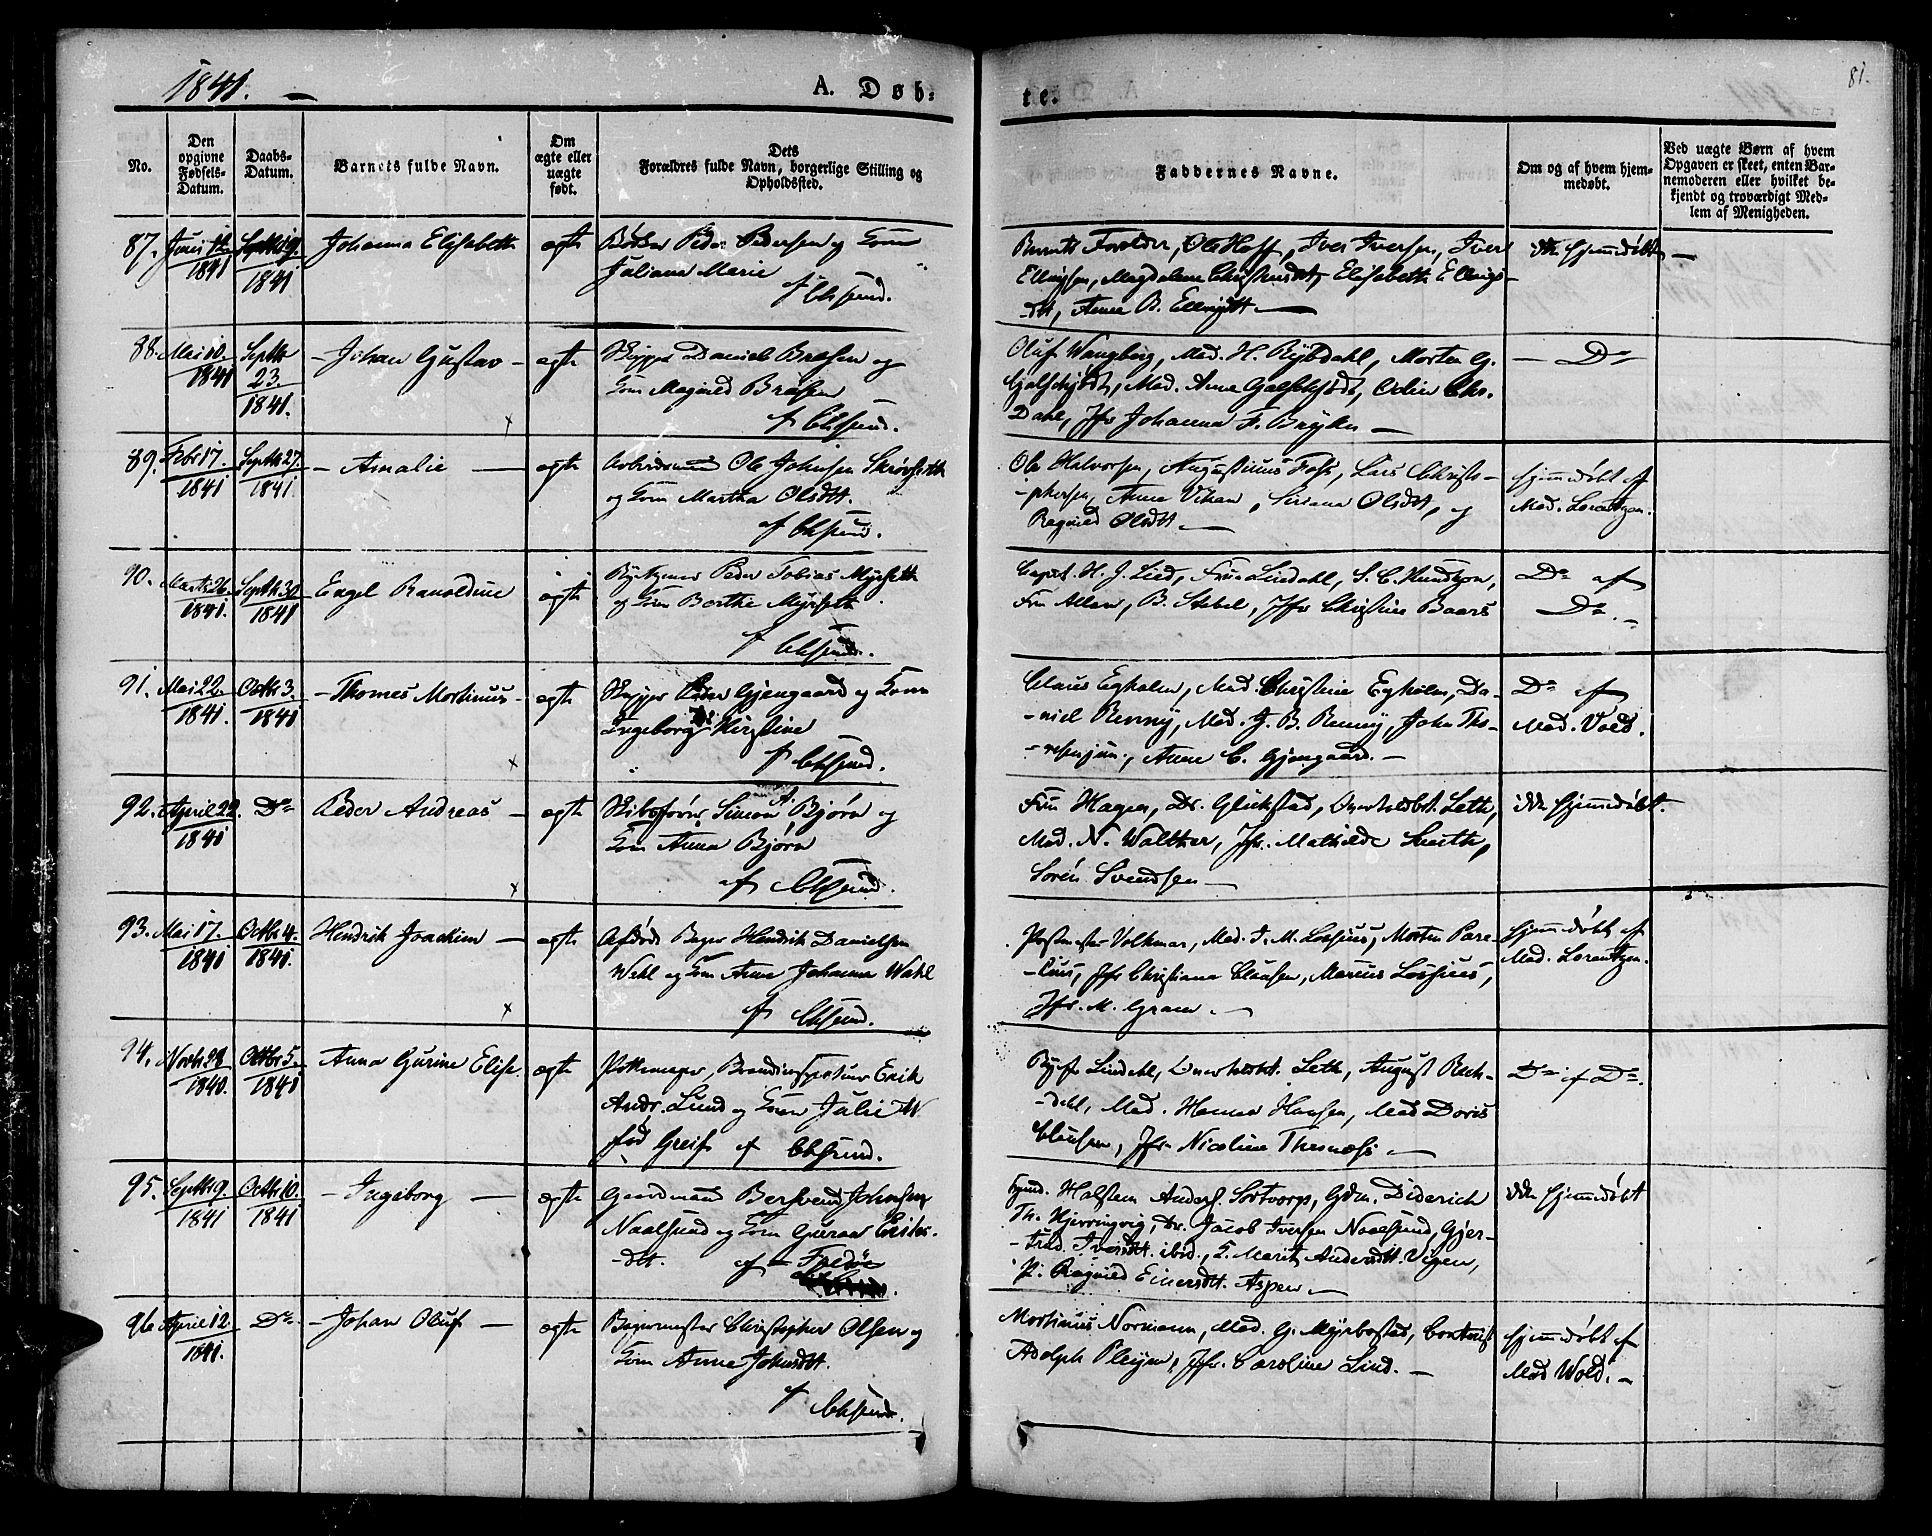 1841.
A. Døb-
te.
81.
No.
Den
opgivne
Fødsels-
Datum.
Daabs-
Datum.
Barnets fulde Navn.
Om
ægte eller
uægte
født.
Dets
Forældres fulde Navn, borgerlige Stilling og
Opholdssted.
Faddernes Navne.
Om og af hvem hjem-
medøbt.
Ved uægte Børn af hvem
Opgaven er skeet, enten Bar-
nemoderen eller hvilket be-
kjendt og troværdigt Med-
lem af Menigheden.
87. Juni 12. 1841 Septbr 19. 1841
Johanna Elisabeth
ægte
Peder Pedersen og Kone
Juliana Marie
af Chrsund.
Barnets Forældre, Ole Hoff, Iver Iversen, Iver
Ellingsen, Magdalena Christensdtt, Elisabeth Ellings-
dtt, Anne B. Ellingsdtt —
ikke hjemmedøbt —
88. Mai 10. 1841 Septbr 23. 1841.
— Johan Gustav —
ægte
Skipper Daniel Brosen og
Kone Magnild Brosen
af Chrsund.
Oluf Wangberg, Mad. H. Rybdahl, Morten G.
Galschjødt, Mad. Anne Galschjødt, Odin Chr.
Dahl, Jfr Johanna F. —
— Do
89. Febr 17. 1841 Septbr 27. 1841.
— Amalie —
ægte
Arbeidsmand Ole Johnsen
og Kone Martha Olsdtt.
af Chrsund.
Ole Halvorsen, Augustinus Foss, Lars Christo-
-phersen, Anne Vikan, Siriana Olsdtt, og
Ragnild Olsdtt —
hjemmedøbt af
Mad. Lorentzen.
90. Marts 26. 1841. Septbr 30 1841
Engel Ranoldine
ægte
Peder Tobias Myrseth
og Kone Berthe Myrseth
af Chrsund.
Capt. H. J. Lied, Frue Lindahl, S. C. Knudtzon,
Fru Allan, B. Stabel, Jfr Christine Baars
Do af
Do. —
91. Mai 22. 1841. Octbr 3. 1841
— Thomes Martinus —
ægte
Skipper Peder Gjengaard og Kone
Ingeborg Kirstine
af Chrsund.
Claus Egholm, Mad. Christine Egholm, Da-
-niel Renny, Mad. J. B. Renny, John Tho-
-resen jun., Anne C. Gjengaard. —
Do af
Mad. Vold.
92. April 22. 1840 Do
Peder Andreas —
ægte
Skibsfører Simon A. Bjørn og
Kone Anna Bjørn
af Chrsund.
Fru Hagen, Dr. Glükstad, Overtoldbet. Leth,
Mad. N. Walther, Jfr. Mathilde Leeth,
Søren Svendsen —
ikke hjemmedøbt.
93. Mai 17. 1841 Octbr 4. 1841.
Hendrik Joachim —
ægte
Afdøde Bager Hendrik Danielsen
Wahl og Kone Anne Johanna Wahl
af Chrsund.
Postmester Volkmar, Mad. J. M. Lossius, Morten Pare-
-lius, Jfr Christiana Clausen, Marius Lossius,
Jfr. M. Gram. —
hjemmedøbt af
Mad. Lorentzen.
94. Novbr 28 1840. Octbr 5. 1841
Anna Gurine Elise
ægte
Brandinspecteur Erik
Andr. Lund og Kone Julie W
fød Greif af Chrsund.
Lindahl, Overtoldbt. Leth, August Bech-
-dahl, Mad. Hanna Hansen, Mad Doris
Clausen, Jfr. Nicoline Thesnæs. —
Do af Do.
95. Septbr 9. 1841 Octbr 10. 1841
— Ingeborg —
ægte
Gaardmand Bersvend Johnsen
Naalsund og Kone Guran Eriks-
-dtt. af Fredøe
Halsten Anders. Sortvorp, Gdm. Diderich
Th. Hjerringvig, Dr. Jacob Iversen Naalsund, Gjer-
-trud Iversdtt. ibid., K. Marit Andersdtt. Vigen,
P. Ragnild Einersdtt. Aspen —
ikke hjemmedøbt
96. April 12. 1841. Do.
— Johan Oluf —
ægte
Bagermester Christopher Olsen og
Kone Anne Johnsdtt.
af Chrsund.
Mortinus Normann, Mad. G. Myrbostad, Contorist
Adolph Pleym, Jfr. Caroline Lind. —
hjemmedøbt af
Mad Wold. —